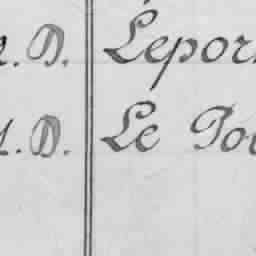 . D. Lepor
. D. Le Pou